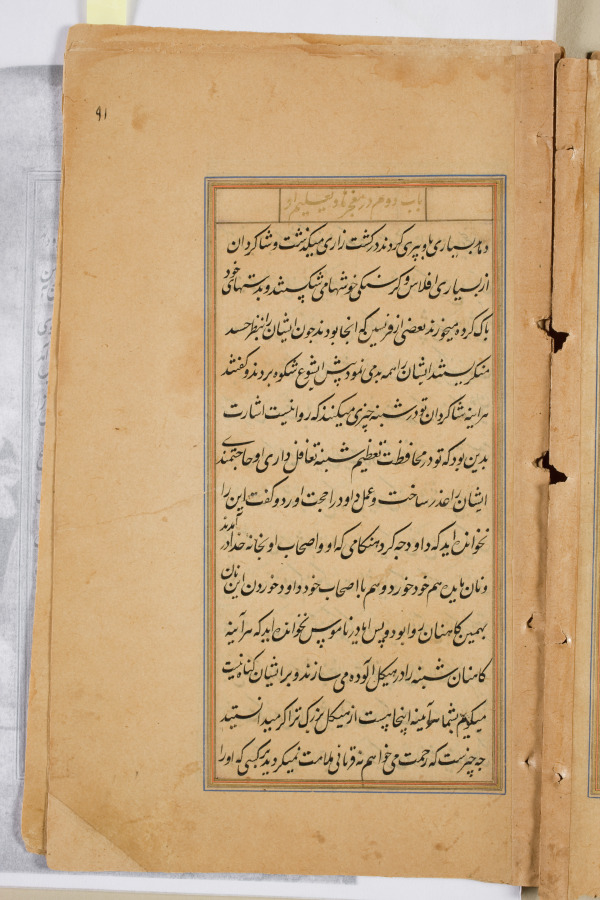 ۹۱
باب دوم در معجزها و تعلیم او
بسیاری پیروی کردند در کشت زاری میگذشت و شاکردان
از بسیاری افلاس و کرسنکی خوشها می شکستند و بدستهای خود
پاک کرده میخورند بعضی از فرنسین که انجا بودند چون ایشان را بنظر حسد
منکریستند ایشان را همه بد می نمود پیش ایشوع شکوه بردند و کفتند
هراینه شاکردان تو در شبنه چیزی میکنند که روا نیست اشارت
بدین بود که تو در محافظت تعظیم شبنه تغافل داری او حاجتمندی
ایشان را عذر ساخت و عمل داود را حجت اورد و کفت این را
نخوانده اید که داود چه کرد هنکامی که او و اصحاب او بخانه خدا در امدند
و نان هم خود خورد و هم باصحاب خود داد و خوردن این نان
بهمین کاهنان روا بود و پس اما در ناموس نخوانده اید که هرآینه
کاهنان شبنه را در هیکل آلوده می سازند و بر ایشان کناه نیست
میکویم بشما هرآینه اینجا هست از هیکل بزرک تر اکر میدانستید
چه چیزست که رحمت می خواهم نه قربانی ملامت نمیکردید کسی که او را